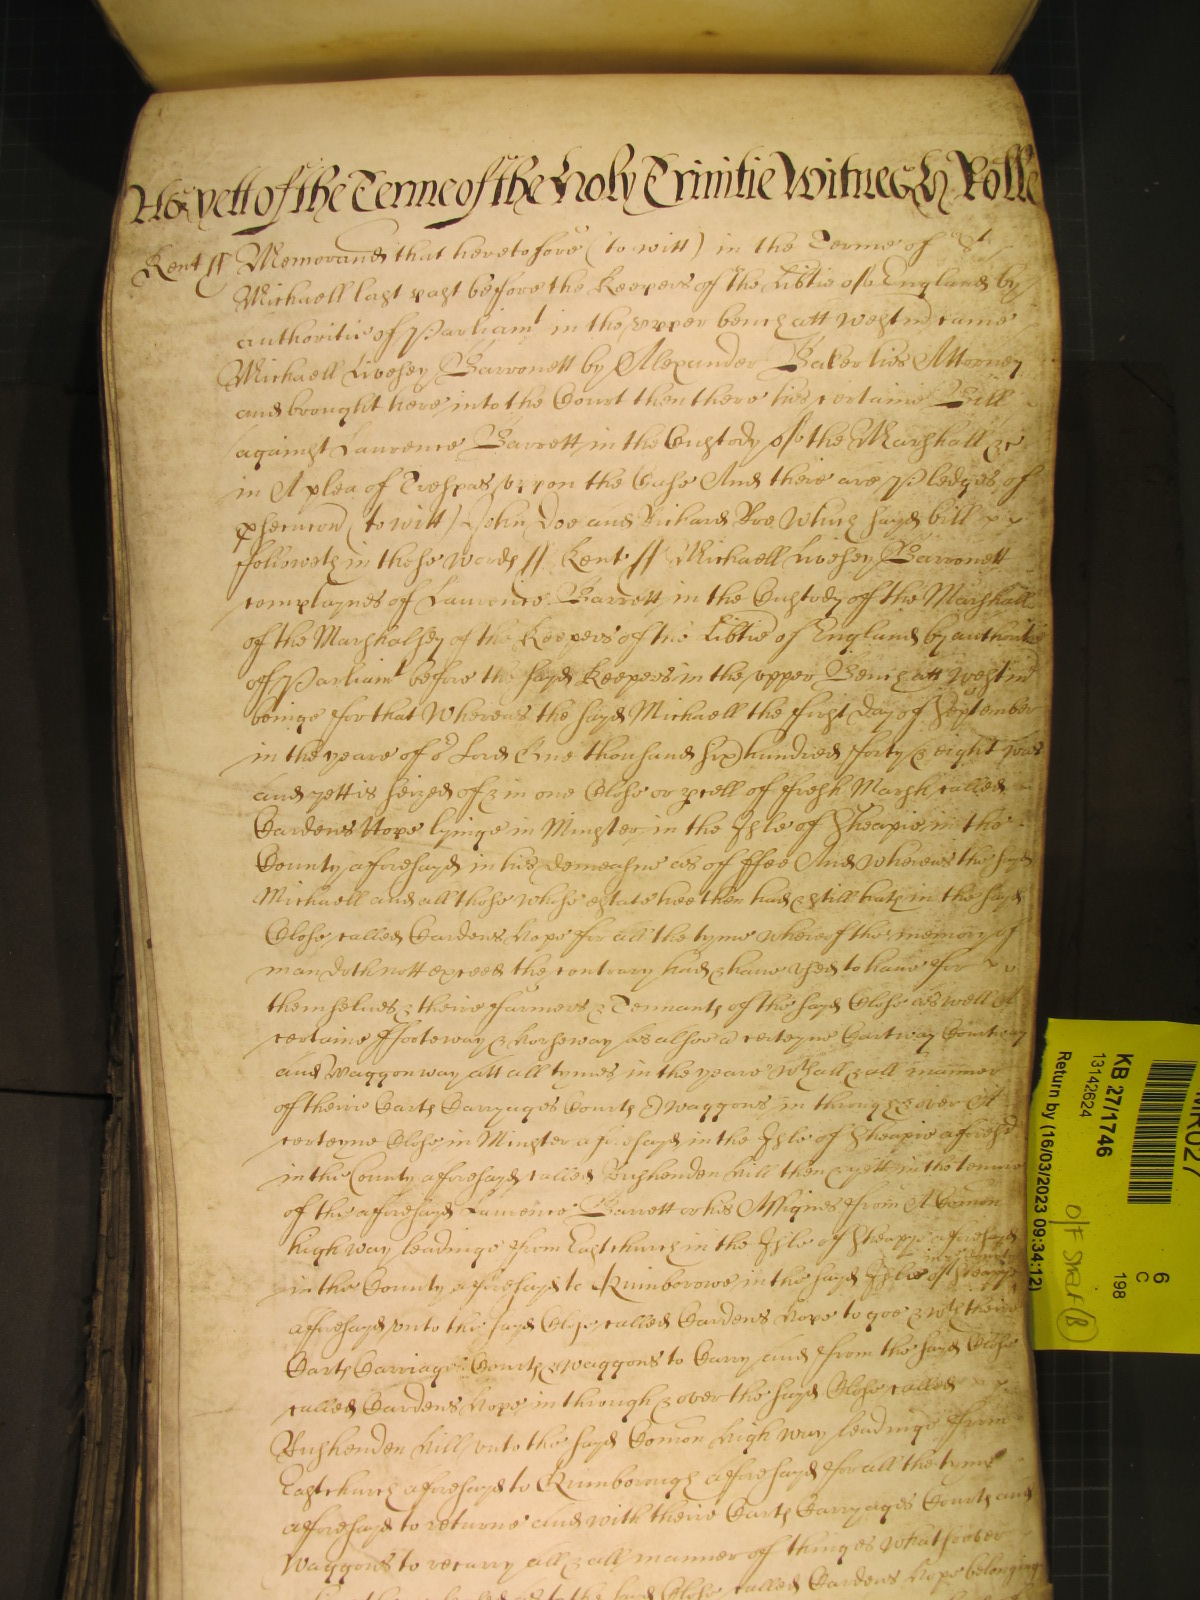 As yett of the Terme of the holy Trinitie Witnes Rolle
Kent ss Memorand that heretofore (to witt) in the Terme of St
Michaell last past before the Keepers of the Libtie of England by
authoritie of Parliamt in the upper bench att Westm came
Michaell Livesey Barronett by Alexander Baker his Attorney
and brought here into the Court then there his certaine Bill
against Laurence Barrett in the Custody of the Marshall &c
in A plea of Trespas upon the Case And there are Pledges of
psecucon (to witt) John Doe and Richard Roe Which sayd bill
followeth in these words // Kent // Michaell Livesey Barronett
complaynes of Laurence Barrett in the Custody of the Marshall
of the Marshalsey of the Keepers of the Libtie of England by authoritie
of Parliamt before the sayd Keepers in the upper Bench att Westm
beinge for that Whereas the sayd Michaell the first day of September
in the yeare of or Lord One thousand six hundred forty & eight was
and yett is seized of & in one Close or pcell of fresh Marsh called
Gardens Hope lyinge in Minster in the Isle of Sheapie in the
County aforesayd in his demeasne as of ffee And whereas the sayd
Michaell and all those whose estate hee then had & still hath in the sayd
Close called Gardens hope for all the tyme whereof the memory of
man doth nott exceed the contrary had & have used to have for
themselves & theire farmers & Tennants of the sayd Close as well A
certaine ffooteway & horseway as alsoe a certeyne Cartway Courtway
and Waggonway att all tymes in the yeare wth all & all manner
of theire Carts Carryages Courts & Waggons in through & over A
certeyne Close in Minster aforesayd in the Isle of Sheapie aforesd
in the County aforesayd called Bushenden hill then & yett in the tenure
of the aforesayd Laurence Barrett or his Assignes from A Comon
high way leadinge from Eastchurch in the Isle of Sheapye aforesayd
in the County aforesayd to Quinborowe in the sayd Isle of Sheapye
afforesayd unto the sayd Close called Gardens hope to goe & wth theire
Carts Carriage Courts & Waggons to Carry and from the sayd Close
called Gardens hope in through & over the sayd Close called
Bushenden hill unto the sayd Comon high way leadinge from
Eastchurch aforesayd to Quinborough afforesayd for all the tyme
afforesayd to returne and with theire Carts Carryages Courts and
Waggons to recarry all & all manner of thinges whatsoever
to the sayd Close called Gardens hope belonging
KB 27/1746
13142624
Return by (16/03/2023 09:34:12)
6
C
198
O/F Shelf (B)